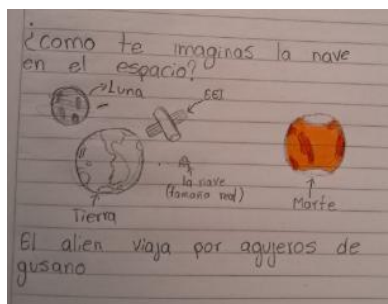 ¿como te imaginas la nave
en el espacio?
Luna
EEI
la nave
(tamaño real)
Tierra
Marte
El alien viaja por agujeros de
gusano